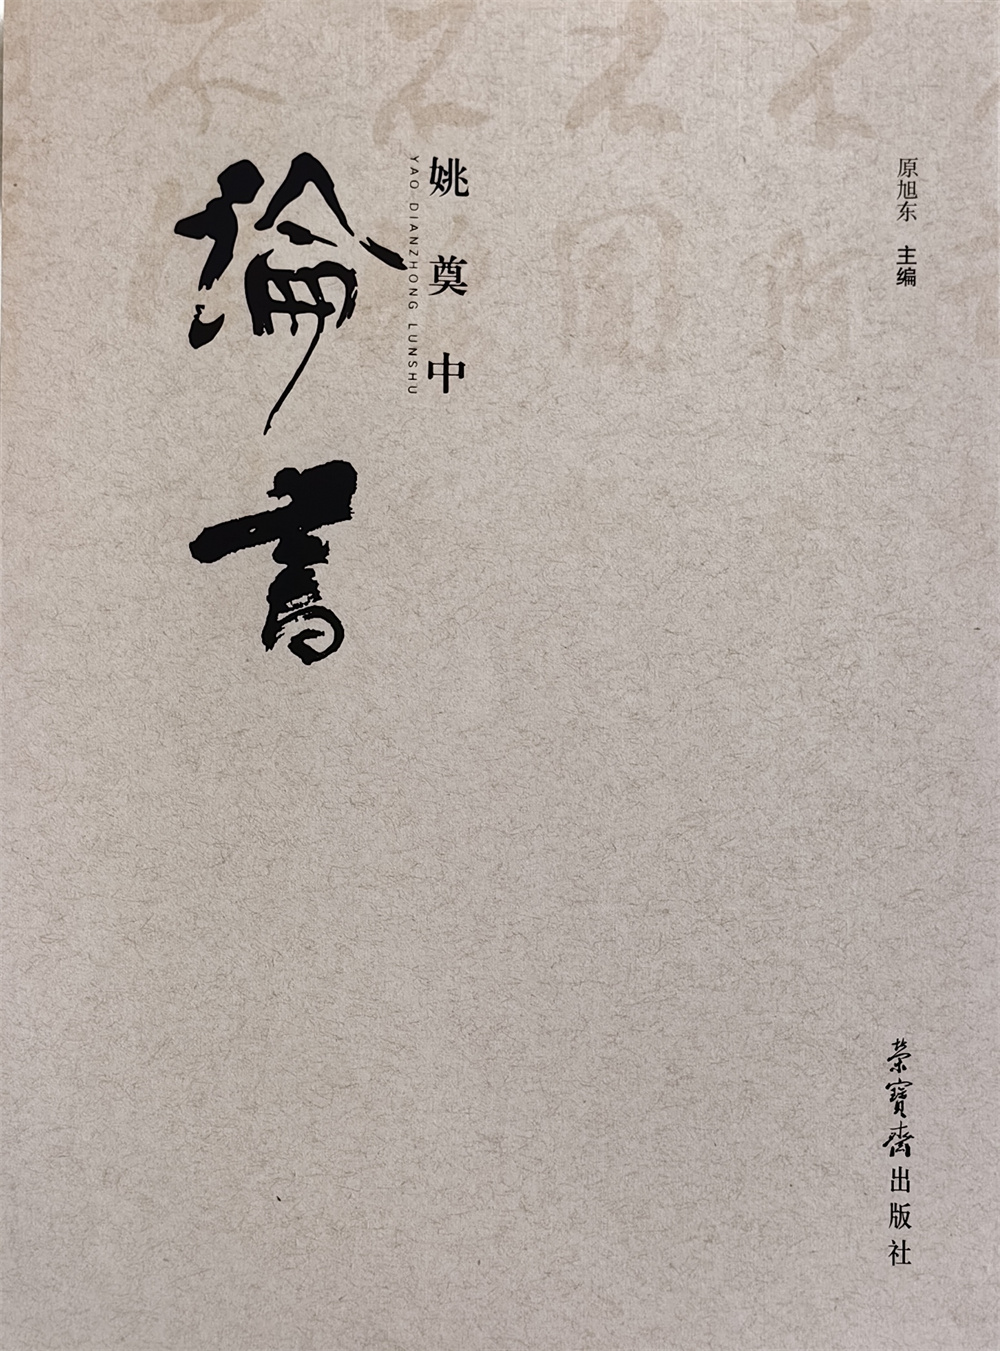 原旭东 主编
姚奠中
YAO DIANZHONG LUNSHU
論書
荣寶斋出版社